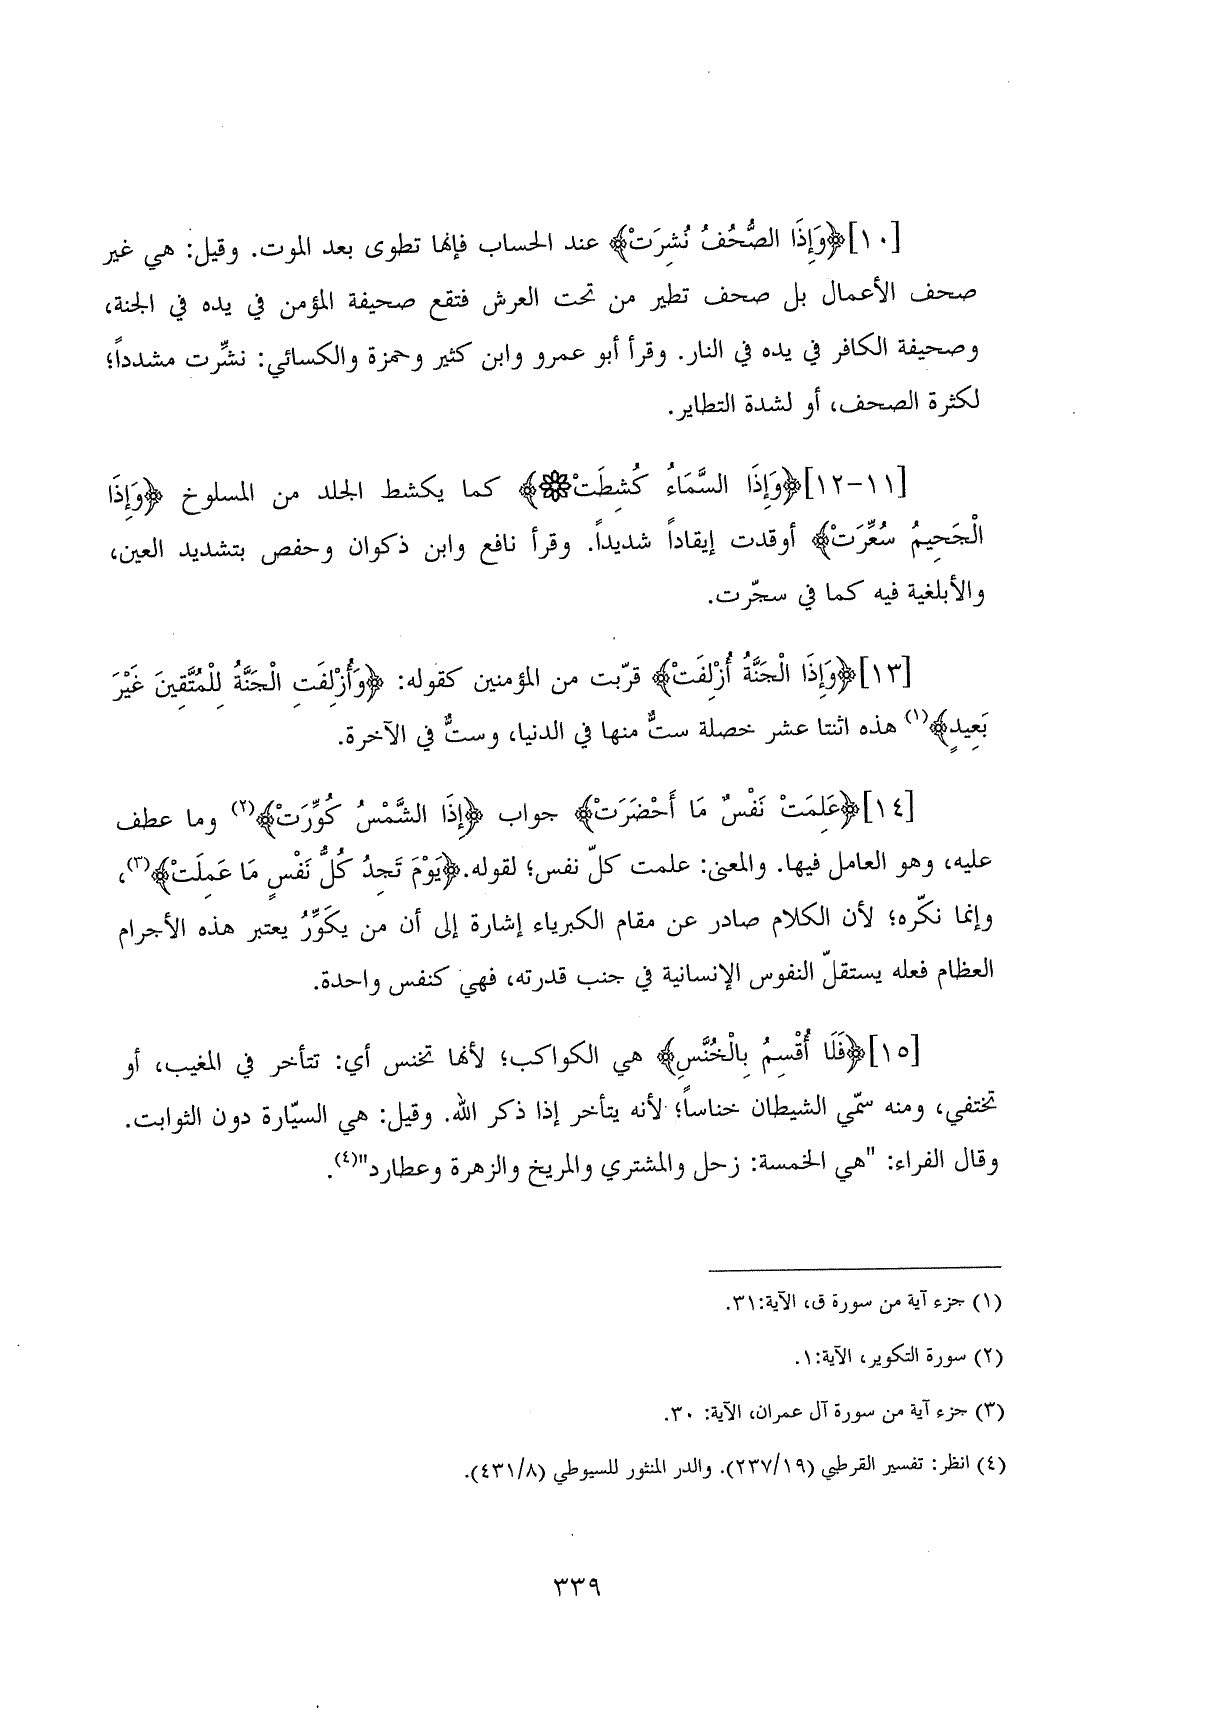 [١٠]﴿وَإِذَا الصُّحُفُ نُشِرَتْ﴾ عند الحساب فإنها تطوى بعد الموت. وقيل: هي غير
صحف الأعمال بل صحف تطير من تحت العرش فتقع صحيفة المؤمن في يده في الجنة،
وصحيفة الكافر في يده في النار. وقرأ أبو عمرو وابن كثير وحمزة والكسائي: نشِّرت مشدداً؛
لكثرة الصحف، أو لشدة التطاير.
[١١-١٢]﴿وَإِذَا السَّمَاءُ كُشِطَتْ۞﴾ كما يكشط الجلد من المسلوخ ﴿وَإِذَا
الْجَحِيمُ سُعِّرَتْ﴾ أوقدت إيقاداً شديداً. وقرأ نافع وابن ذكوان وحفص بتشديد العين،
والأبلغية فيه كما في سجّرت.
[١٣]﴿وَإِذَا الْجَنَّةُ أُزْلِفَتْ﴾ قرّبت من المؤمنين كقوله: ﴿وَأُزْلِفَتِ الْجَنَّةُ لِلْمُتَّقِينَ غَيْرَ
بَعِيدٍ﴾(١) هذه اثنتا عشر خصلة ستٌّ منها في الدنيا، وستٌّ في الآخرة.
[١٤]﴿عَلِمَتْ نَفْسٌ مَا أَحْضَرَتْ﴾ جواب ﴿إِذَا الشَّمْسُ كُوِّرَتْ﴾(٢) وما عطف
عليه، وهو العامل فيها. والمعنى: علمت كلّ نفس؛ لقوله.﴿يَوْمَ تَجِدُ كُلُّ نَفْسٍ مَا عَمِلَتْ﴾(٣)،
وإنما نكّره؛ لأن الكلام صادر عن مقام الكبرياء إشارة إلى أن من يكَوِّرُ يعتبر هذه الأجرام
العظام فعله يستقلّ النفوس الإنسانية في جنب قدرته، فهي كنفس واحدة.
[١٥]﴿فَلَا أُقْسِمُ بِالْخُنَّسِ﴾ هي الكواكب؛ لأنها تخنس أي: تتأخر في المغيب، أو
تختفي، ومنه سمّي الشيطان خناساً؛ لأنه يتأخر إذا ذكر الله. وقيل: هي السيّارة دون الثوابت.
وقال الفراء: "هي الخمسة: زحل والمشتري والمريخ والزهرة وعطارد"(٤).
(١) جزء آية من سورة ق، الآية:٣١.
(٢) سورة التكوير، الآية:١.
(٣) جزء آية من سورة آل عمران، الآية: ٣٠.
(٤) انظر: تفسير القرطبي (٢٣٧/١٩). والدر المنثور للسيوطي (٤٣١/٨).
٣٣٩